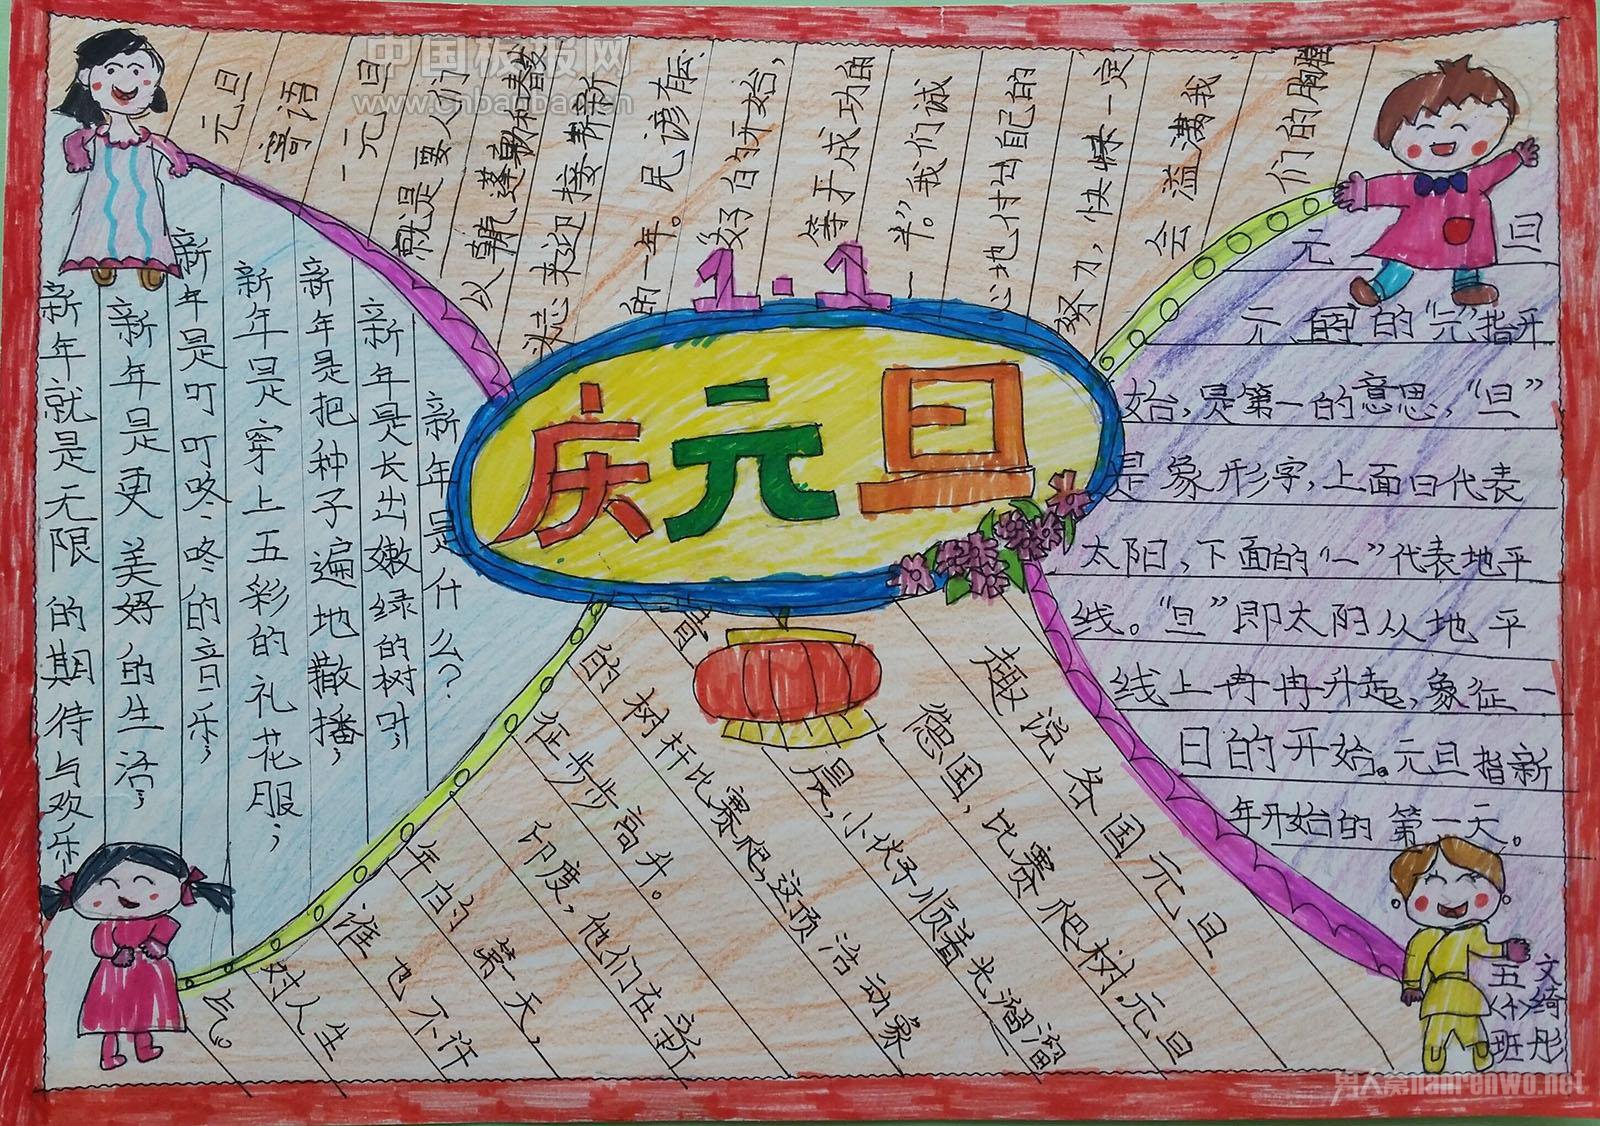 中国板报网
www.cnbanbao.cn
1·1
庆元旦
元旦
寄语
一元旦
就是要人们
以朝气蓬勃和
斗志来迎接崭新
的一年。民谚有云:
好的开始,
等于成功的
一半。”我们诚
心地付出自己的
努力,快一定
会溢满我
们的胸膛
元旦
元旦的“元”指开
始,是第一的意思,“旦”
是象形字,上面日代表
太阳,下面的“一”代表地平
线。“旦”即太阳从地平
线上冉冉升起,象征一
日的开始。元旦指新
年开始的第一天。
新年是什么?
新年是长出嫩绿的树叶;
新年是把种子遍地散播;
新年是穿上五彩的礼花服;
新年是叮叮咚咚的音乐;
新年是更美好的生活;
新年就是无限的期待与欢乐
趣说各国元旦
德国,比赛爬树.元旦
清晨,小伙子顺着光溜溜
的树杆比赛爬,这项活动象
征步步高升。
印度,他们在新
年的第一天,
谁也不许
对人生
气。
五〈十〉班
文绮彤
男人窝nanrenwo.net